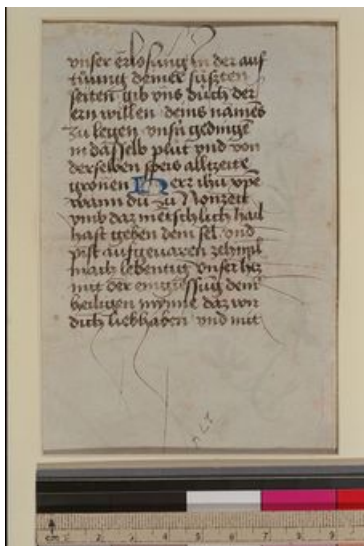 vnser erlosung in der auf
tuung deiner süssten
seiten gib vns durch der
ern willen deins namēs
zu legen vnsn geding
in dasselb plut vnd von
derselben speis alltzeite
gronen Herr ihū xpe
wann du zu Nonzeit
vmb daz mēschlich hail
hast geben dein sel vnd
pist aufgeuaren ze himl
mach lebentig vnser hcz
mit der eingiessūg deiner
heiligen mynne daz wir
dich liebhaben vnd mit
cm 1 2 3 4 5 6 7 8 9